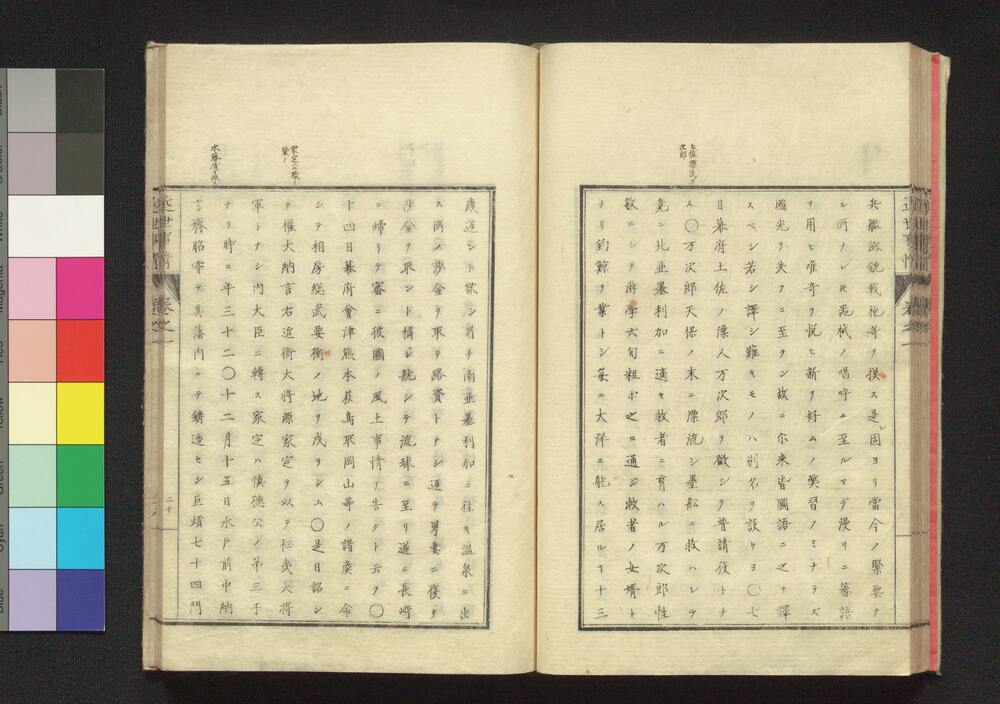 土佐漂民万
次郎
兵艦砲銃戦砲等ヲ摸ス是固ヨリ當今ノ緊要ナ
ル所ナレ𪜈器械ノ唱呼ニ至ルマデ漫リニ蕃語
ヲ用ヒ唯奇ヲ悦ヒ新ヲ好ムノ弊習ノミナラズ
國光ヲ失フニ至ラン故ニ尓来皆國語ニ之ヲ譯
スベシ若シ譯シ難キモノハ別名ヲ設ケヨ〇七
日幕府土佐ノ漂人万次郎ヲ徴シテ普請役トナ
ス〇万次郎天保ノ末ニ漂流シ墨船ニ救ハレテ
竟ニ北亜墨利加ニ適キ救者ニ育ハル万次郎性
敏ニシテ洋学六旬粗ボ之ニ通ジ救者ノ女壻ト
ナリ釣鯨ヲ業トシ毎ニ大洋ニ航ス居ルヿ十三
歳還ント欲シ乃チ南亜墨利加ニ往キ温泉ニ出
ス所ノ沙金ヲ取テ路資トナシ返テ舅妻ニ復タ
沙金ヲ取ント稱シ航シテ流球ニ至リ遂ニ長崎
ニ帰リテ審ニ彼國ノ風土事情ヲ告グト云フ〇
十四日幕府會津熊本萩鳥取岡山等ノ諸矦ニ命
シテ相房総武要衝ノ地ヲ戍ラシム〇是日詔シ
テ權大納言右近衛大将源家定ヲ以テ征夷大将
軍トナシ内大臣ニ轉ス家定ハ慎徳公ノ第三子
ナリ時ニ年三十二〇十二月十五日水戸前中納
言齊昭嘗テ其藩内ニテ鋳造セシ巨熕七十四門
近世事情
巻之一
二十